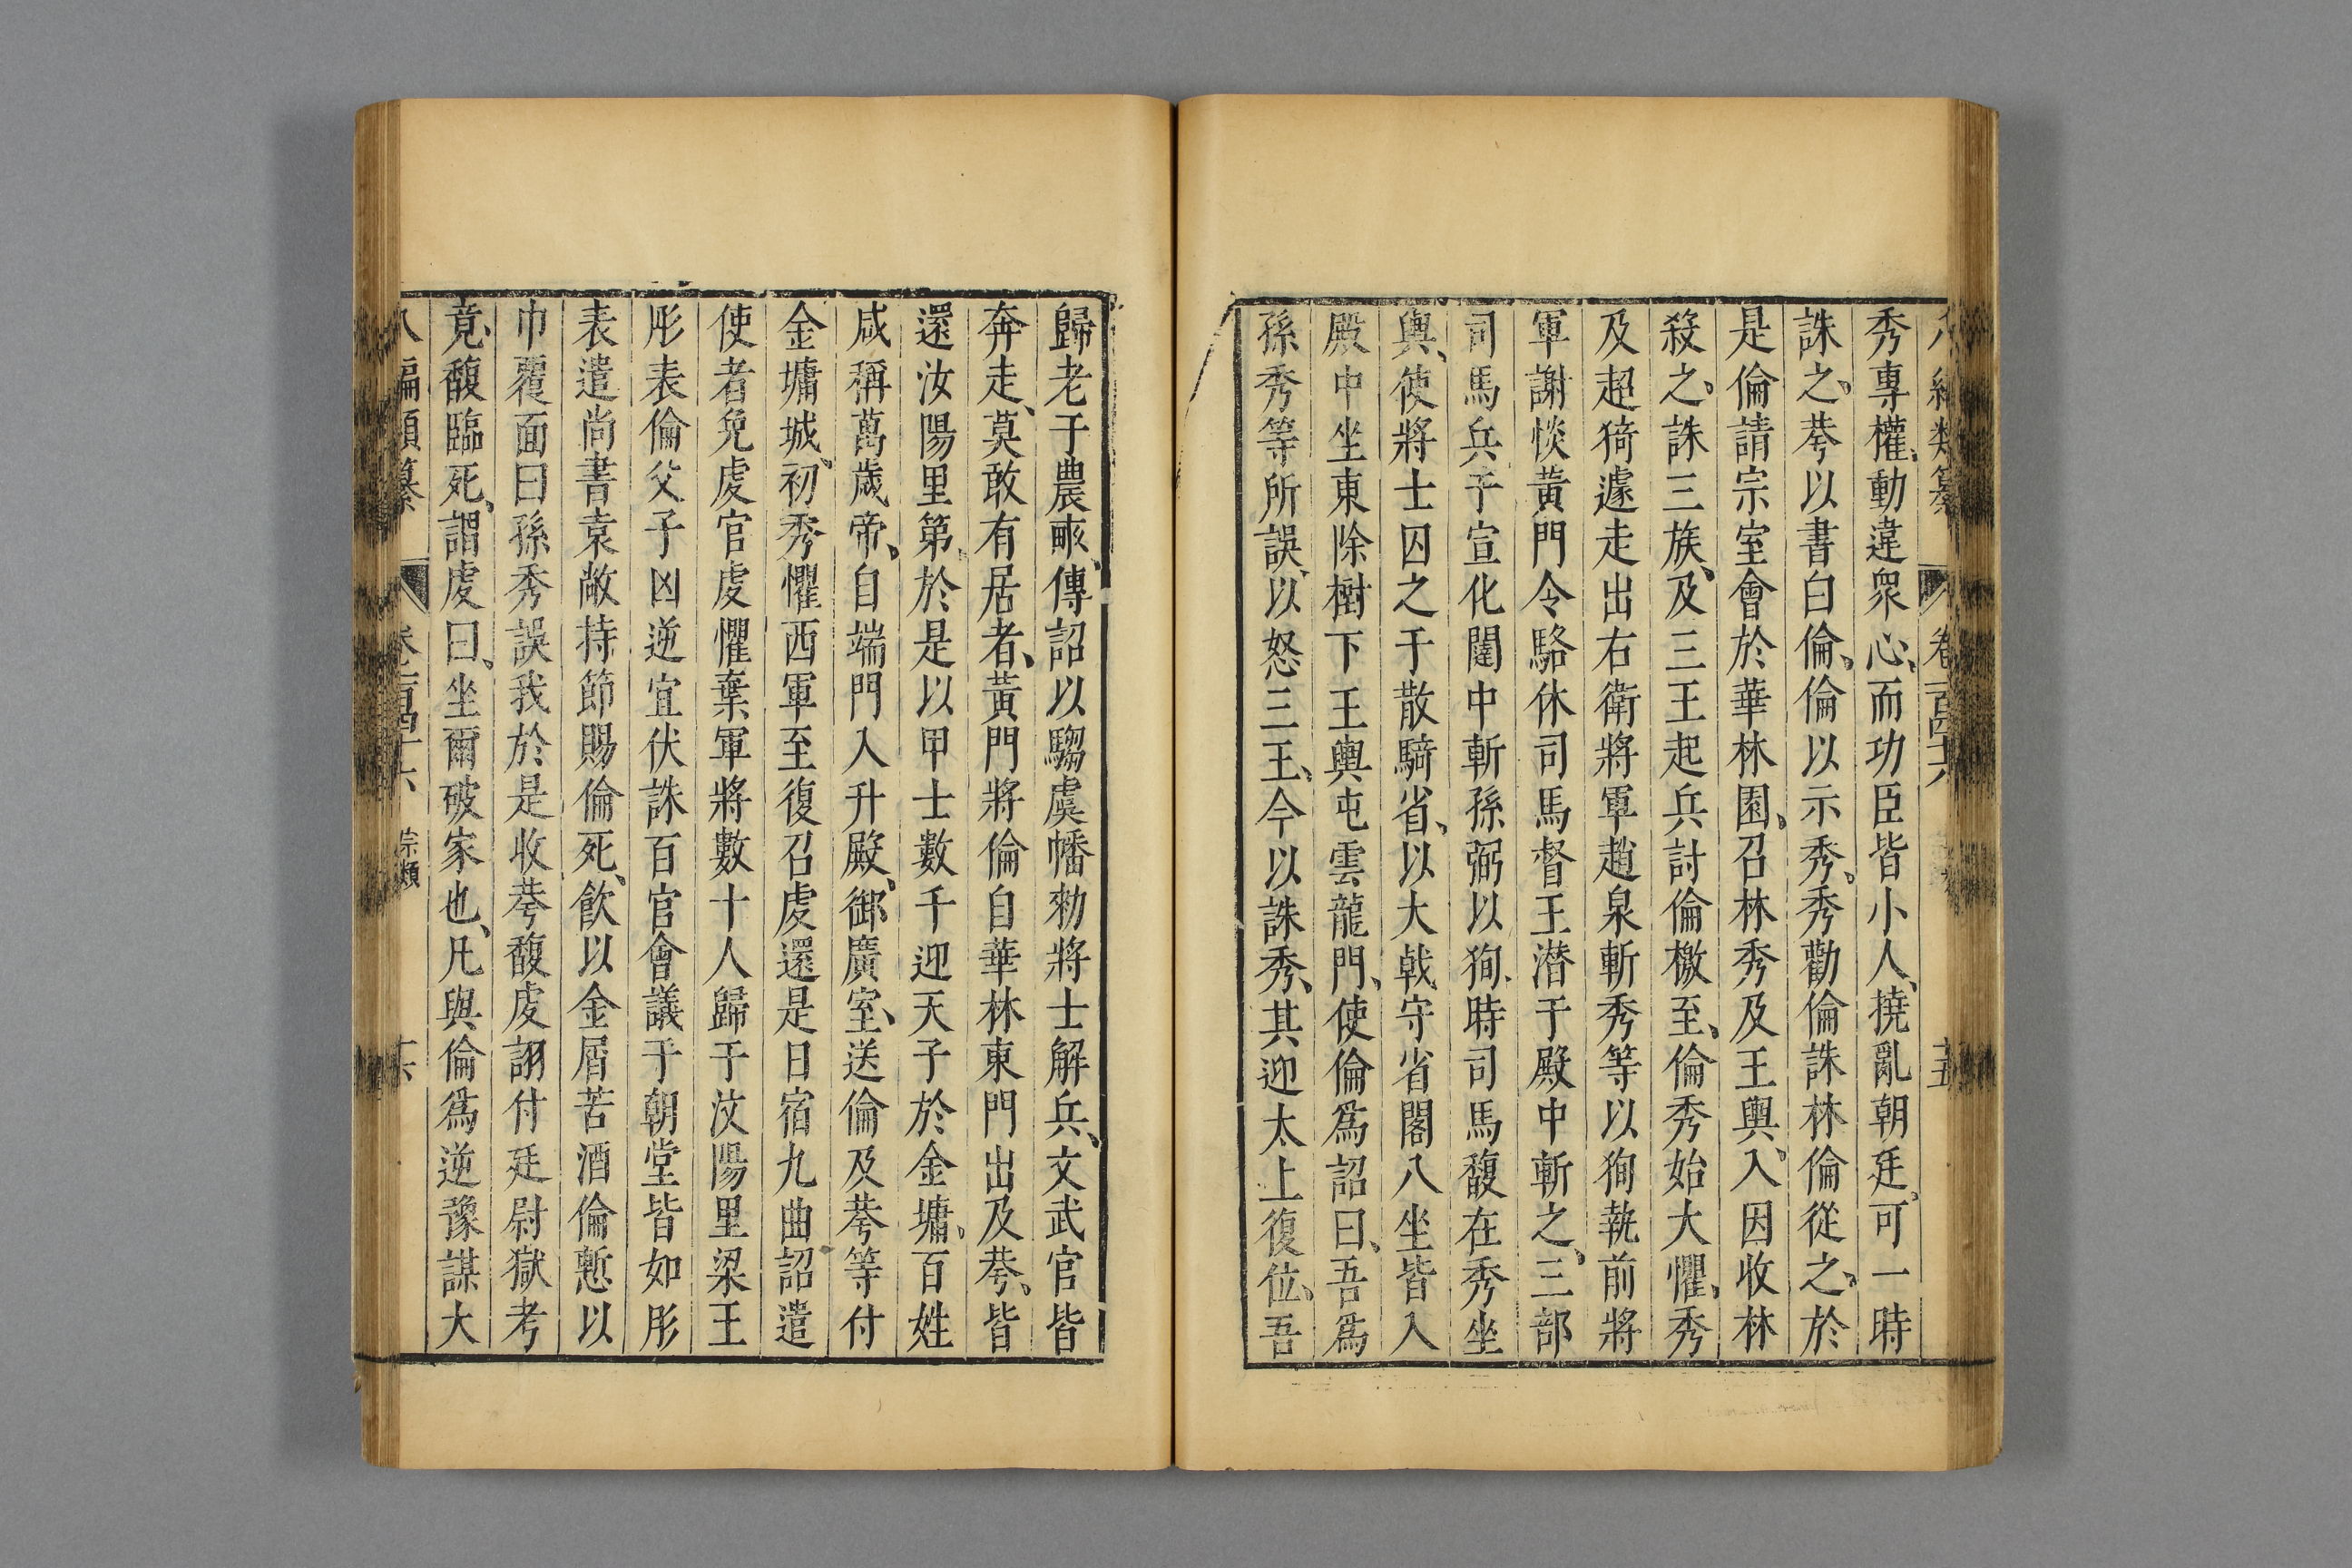 秀專權、動違眾心、而功臣皆小人、撓亂朝廷、可一時
誅之、荂以書白倫、倫以示秀、秀勸倫誅林倫從之、於
是倫請宗室會於華林園、召林秀及王輿入、因收林
殺之、誅三族、及三王起兵討倫檄至、倫秀始大懼、秀
及超猗遽走出右衛將軍趙泉斬秀等以狥執前將
軍謝惔黃門令駱休司馬督王潜于殿中斬之、三部
司馬兵于宣化闥中斬孫弼以狥、時司馬馥在秀坐
輿、使將士囚之于散騎省、以大戟守省閣八坐皆入
殿中坐東除樹下王輿屯雲龍門、使倫爲詔曰、吾爲
孫秀等所誤、以怒三王、今以誅秀、其迎太上復位、吾
歸老于農畝、傳詔以騶虞幡勑將士解兵、文武官皆
奔走、莫敢有居者、黃門將倫自華林東門出及荂、皆
還汝陽里第、於是以甲士數千迎天子於金墉、百姓
咸稱萬歲帝、自端門入升殿、御廣室、送倫及荂等付
金墉城、初秀懼西軍至復召虔還是日宿九曲詔遣
使者免虔官虔懼棄軍將數十人歸于汶陽里梁王
彤表倫父子凶逆宜伏誅百官會議于朝堂皆如彤
表遣尚書袁敞持節賜倫死、飲以金屑苦酒倫慙以
巾覆面曰孫秀誤我於是收荂馥虔詡付廷尉獄考
竟、馥臨死、謂虔曰、坐爾破家也、凡與倫爲逆豫謀大